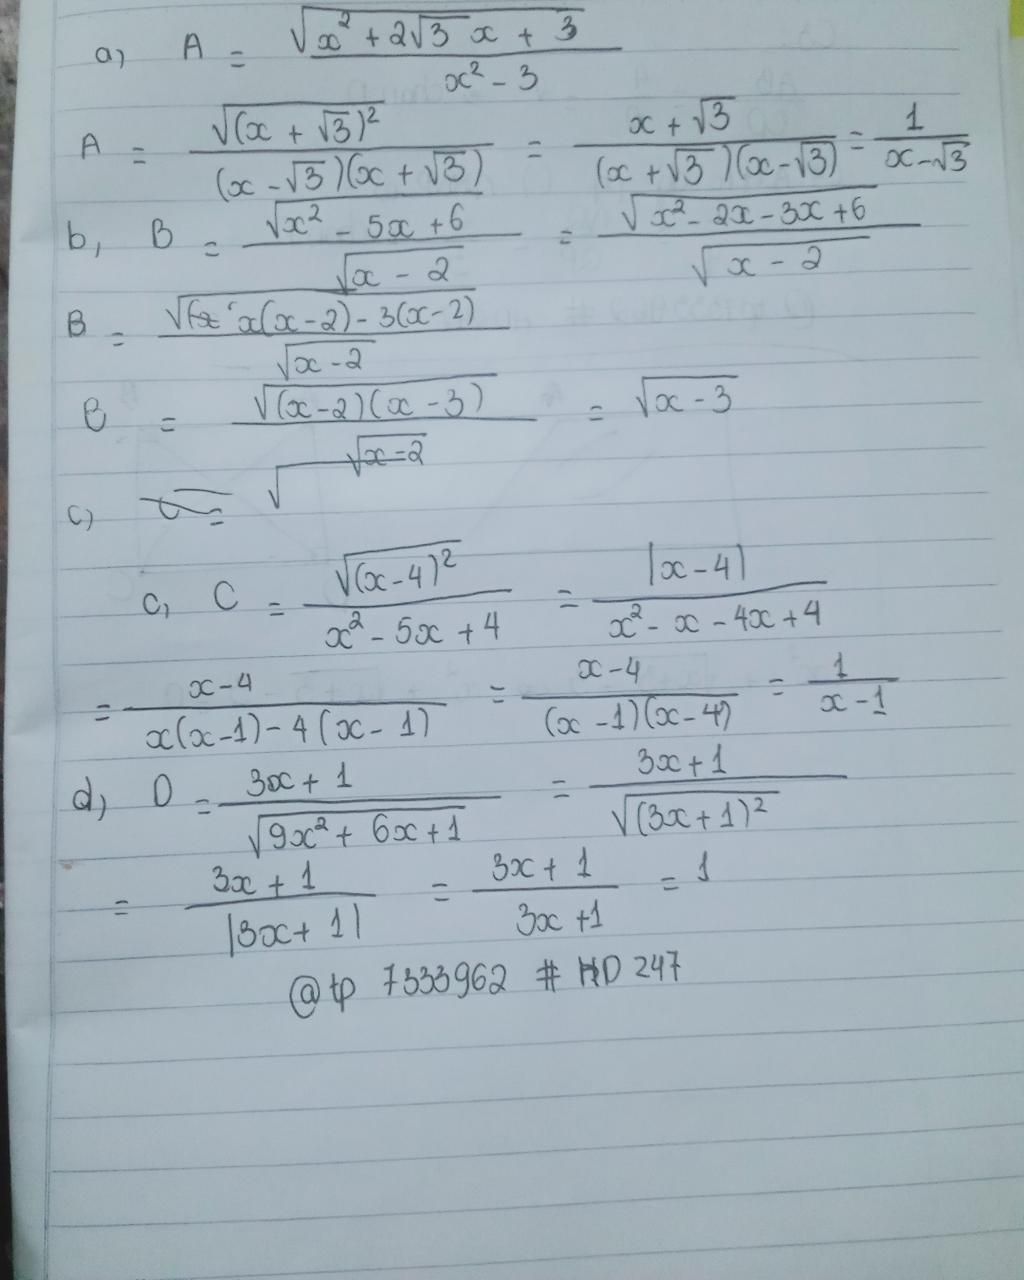 a, A = √(x² + 2√3 x + 3) / (x² - 3)
A = √(x + √3)² / ((x - √3)(x + √3)) = (x + √3) / ((x + √3)(x - √3)) = 1 / (x - √3)
b, B = √(x² - 5x + 6) / √(x - 2) = √(x² - 2x - 3x + 6) / √(x - 2)
B = √(x(x - 2) - 3(x - 2)) / √(x - 2)
B = √((x - 2)(x - 3)) / √(x = 2) = √(x - 3)
c, = √
c, C = √(x - 4)² / (x² - 5x + 4) = |x - 4| / (x² - x - 4x + 4)
= (x - 4) / (x(x - 1) - 4(x - 1)) = (x - 4) / ((x - 1)(x - 4)) = 1 / (x - 1)
d, D = (3x + 1) / √(9x² + 6x + 1) = (3x + 1) / √(3x + 1)²
= (3x + 1) / |3x + 1| = (3x + 1) / (3x + 1) = 1
@tp 7333962 # HD 247